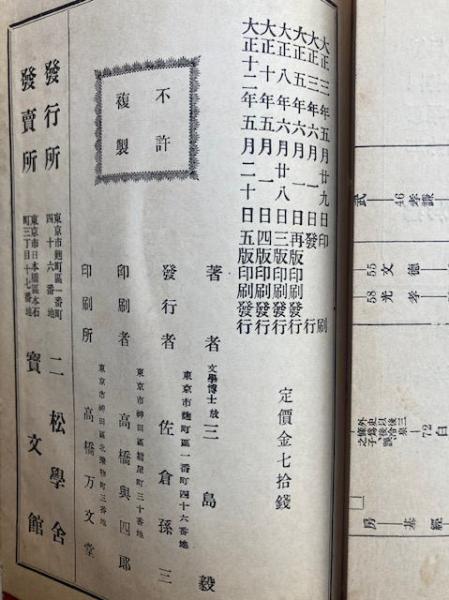 大正三年五月廿九日印刷
大正三年六月一日發行
大正五年六月一日再版印刷發行
大正八年六月廿八日三版印刷發行
大正十年五月一日四版印刷發行
大正十二年五月二十日五版印刷發行
定價金七拾錢
不許
複製
著者 文學博士 故 三島毅
東京市麹町區一番町四十六番地
發行者 佐倉孫三
東京市神田區
三十番地
印刷者 高橋與四郎
東京市神田區北乗物町三番地
印刷所 高橋万文堂
東京市麹町區一番町
四十六番地
發行所 二松學舍
東京市日本橋區本石
町三丁目十七番地
發賣所 寶文館
武
46 孝謙
55 文德
58 光孝
72 白
房 基 經